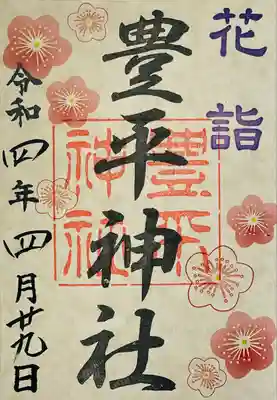 花詣
豊平神社
豊平
神社
令和四年四月廿九日